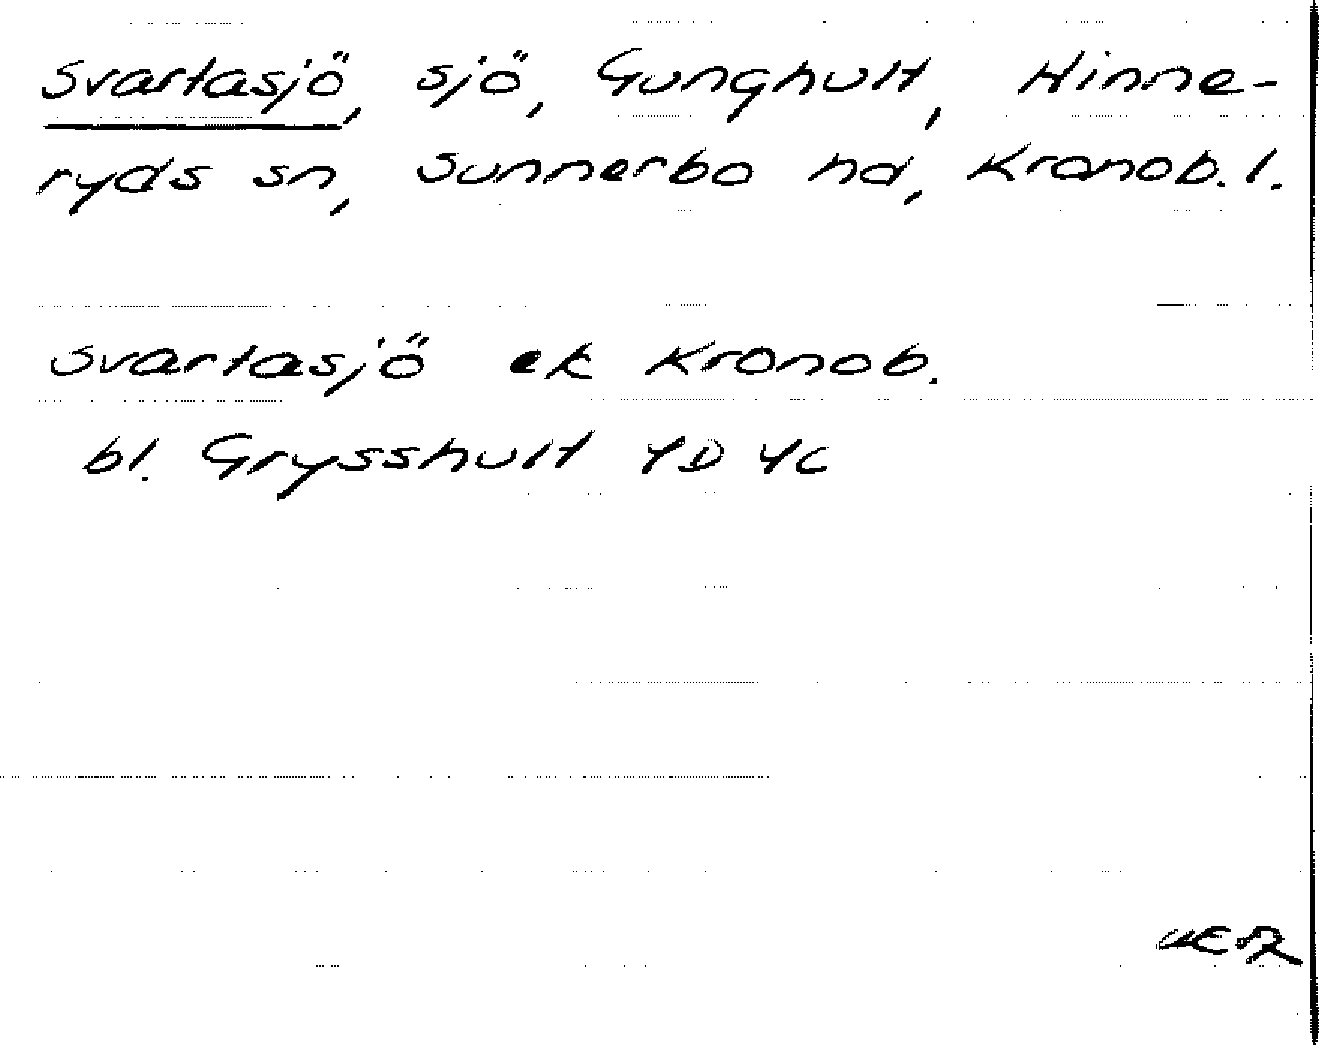 Svartasjö, sjö, Gunghult, Hinne-
ryds sn, Sunnerbo hd, Kronob. l.
Svartasjö ek Kronob.
bl. Grysshult 4D 4c